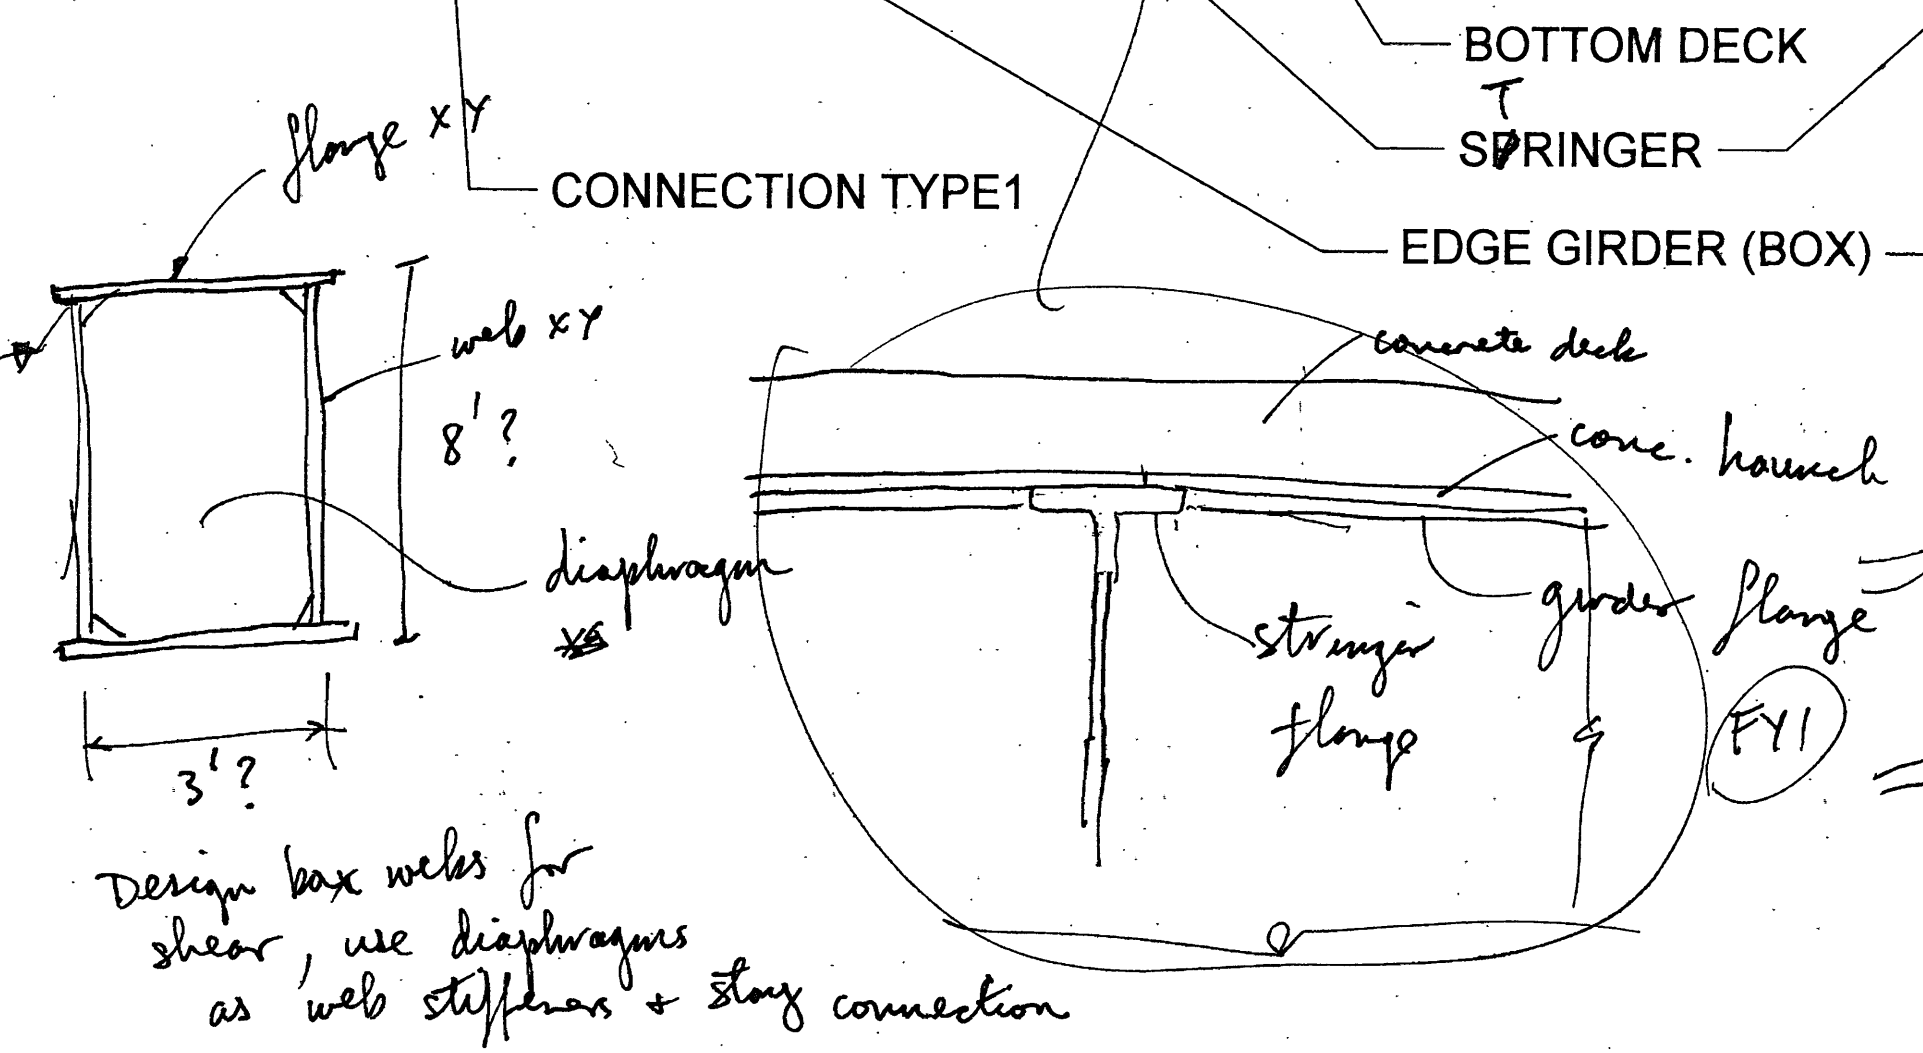 BOTTOM DECK
T
SPRINGER
flange XY
CONNECTION TYPE1
EDGE GIRDER (BOX)
web XY
concrete deck
8'?
conc. haunch
diaphragm
girder flange
stringer
flange
FYI
3'?
Design box webs for
shear, use diaphragms
as web stiffeners + stay connection